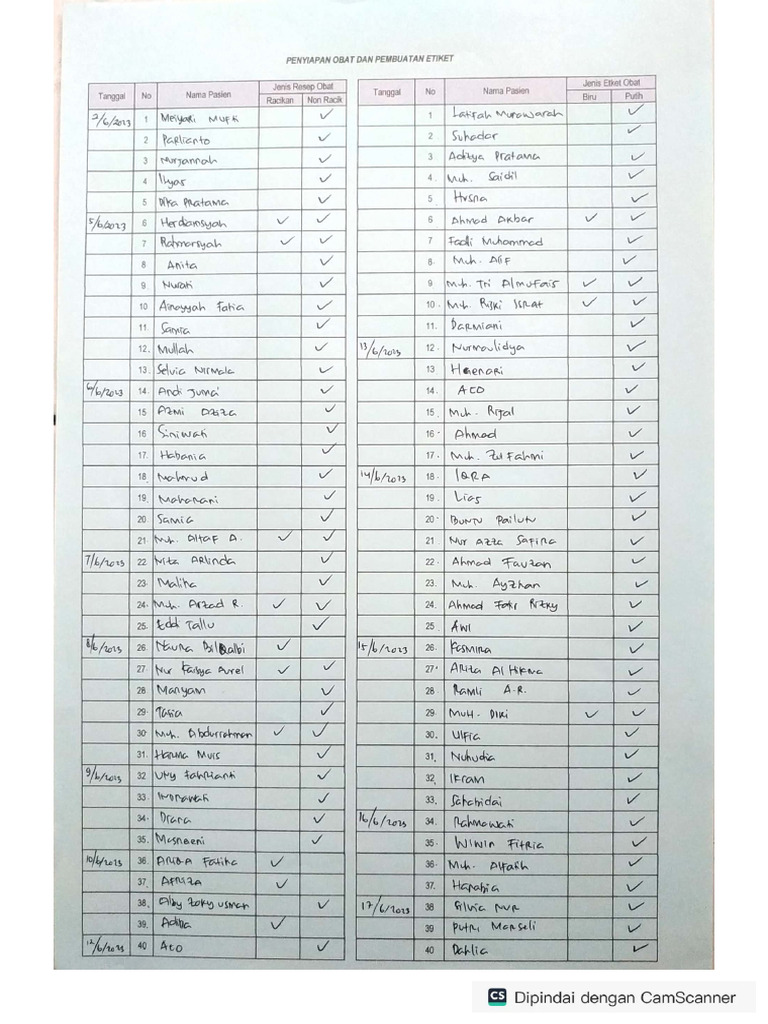 PENYIAPAN OBAT DAN PEMBUATAN ETIKET
Tanggal No Nama Pasien Jenis Resep Obat
Racikan Non Racik
2/6/2023 1 Meiyari Mufti ✓
2 Parlianto ✓
3 Nurjannah ✓
4 Ilyas ✓
5 Dika Pratama ✓
5/6/2023 6 Herdiansyah ✓ ✓
7 Rahmansyah ✓ ✓
8 Anita ✓
9 Nurati ✓
10 Ainayyah Fatia ✓
11. Samia ✓
12. Mullah ✓
13. Selvia Nirmala ✓
6/6/2023 14. Andi Juma' ✓
15 Azmi Aziza ✓
16 Siniwati ✓
17. Habania ✓
18. Mahmud ✓
19. Maharani ✓
20. Samia ✓
21 Muh. Altaf A. ✓ ✓
7/6/2023 22 Nita Arlinda ✓
23. Maliha ✓
24. Muh. Arzad R. ✓ ✓
25. Eddi Tallu ✓
8/6/2023 26. Naura ✓
27. Nur Kaisya Aurel ✓ ✓
28 Mariyam ✓
29. Tasia ✓
30. Muh. Abdurrahman ✓ ✓
31. Haruna Muis ✓
9/6/2023 32 Uny Fahrianti ✓
33. Indrawati ✓
34. Drara ✓
35. Masnaeni ✓
10/6/2023 36. Ariba Fatiha ✓
37. Afriza ✓
38. Alby Zaky Usman ✓
39. Adiba ✓
12/6/2023 40 Aco ✓
Tanggal No Nama Pasien Jenis Etiket Obat
Biru Putih
1 Latifah Munawarah ✓
2 Suhadar ✓
3 Aditya Pratama ✓
4. Muh. Saidil ✓
5 Husna ✓
6 Ahmad Akbar ✓ ✓
7 Fadli Muhammad ✓
8. Muh. Alif ✓
9 Muh. Tri Almufais ✓ ✓
10. Muh. Riski Israt ✓ ✓
11. Darmiani ✓
13/6/2023 12. Nurmaulidya ✓
13 Haenari ✓
14. Aco ✓
15. Muh. Rijal ✓
16. Ahmad ✓
17. Muh. Zul Fahmi ✓
14/6/2023 18. Iqra ✓
19. Lias ✓
20. Buntu Pailutu ✓
21 Nur Azza Safira ✓
22. Ahmad Fauzan ✓
23. Muh. Ayzhan ✓
24. Ahmad Fakr Rizky ✓
25. Awi ✓
15/6/2023 26. Kasmina ✓
27. Arita Al Hikma ✓
28 Ramli A.R. ✓
29 Muh. Diki ✓ ✓
30. Ulfia ✓
31. Nuhudia ✓
32. Ikram ✓
33. Sahabidai ✓
16/6/2023 34. Rahmawati ✓
35. Wiwin Fitria ✓
36. Muh. Alfatih ✓
37. Harabia ✓
17/6/2023 38 Silvia Nur ✓
39 Putri Marseli ✓
40 Dahlia ✓
CS Dipindai dengan CamScanner